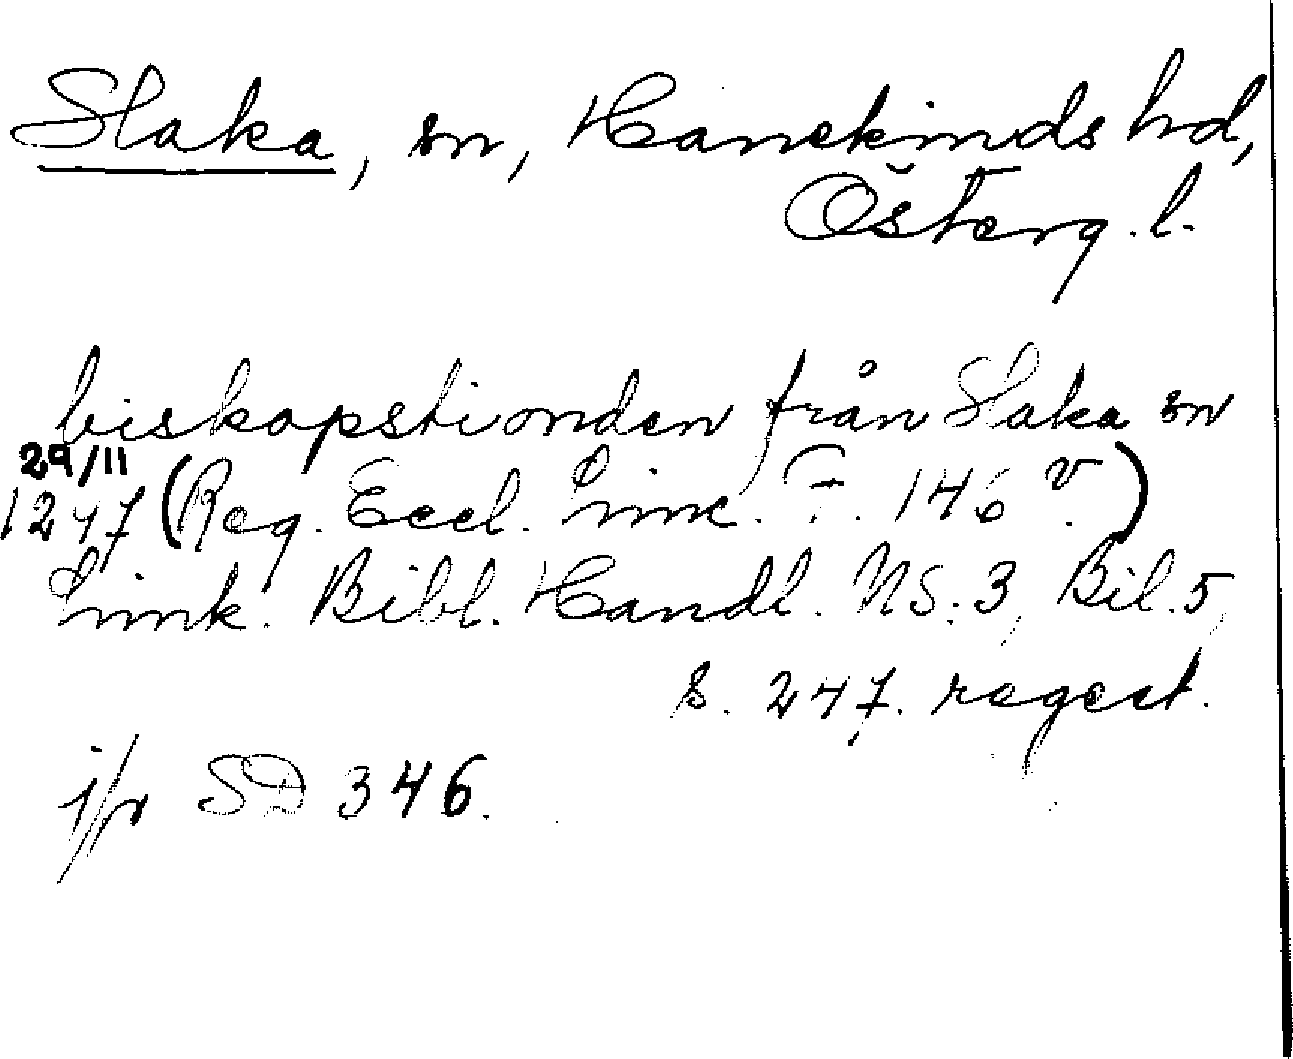 Slaka, sn, Hanekinds hd,
Österg. l.
biskopstionden från Slaka sn
29/11
1247 (Reg. Eccl. Linc. F. 146 v.)
Link. Bibl. Handl. NS. 3, Bil. 5,
s. 247. regest.
jfr SD 346.